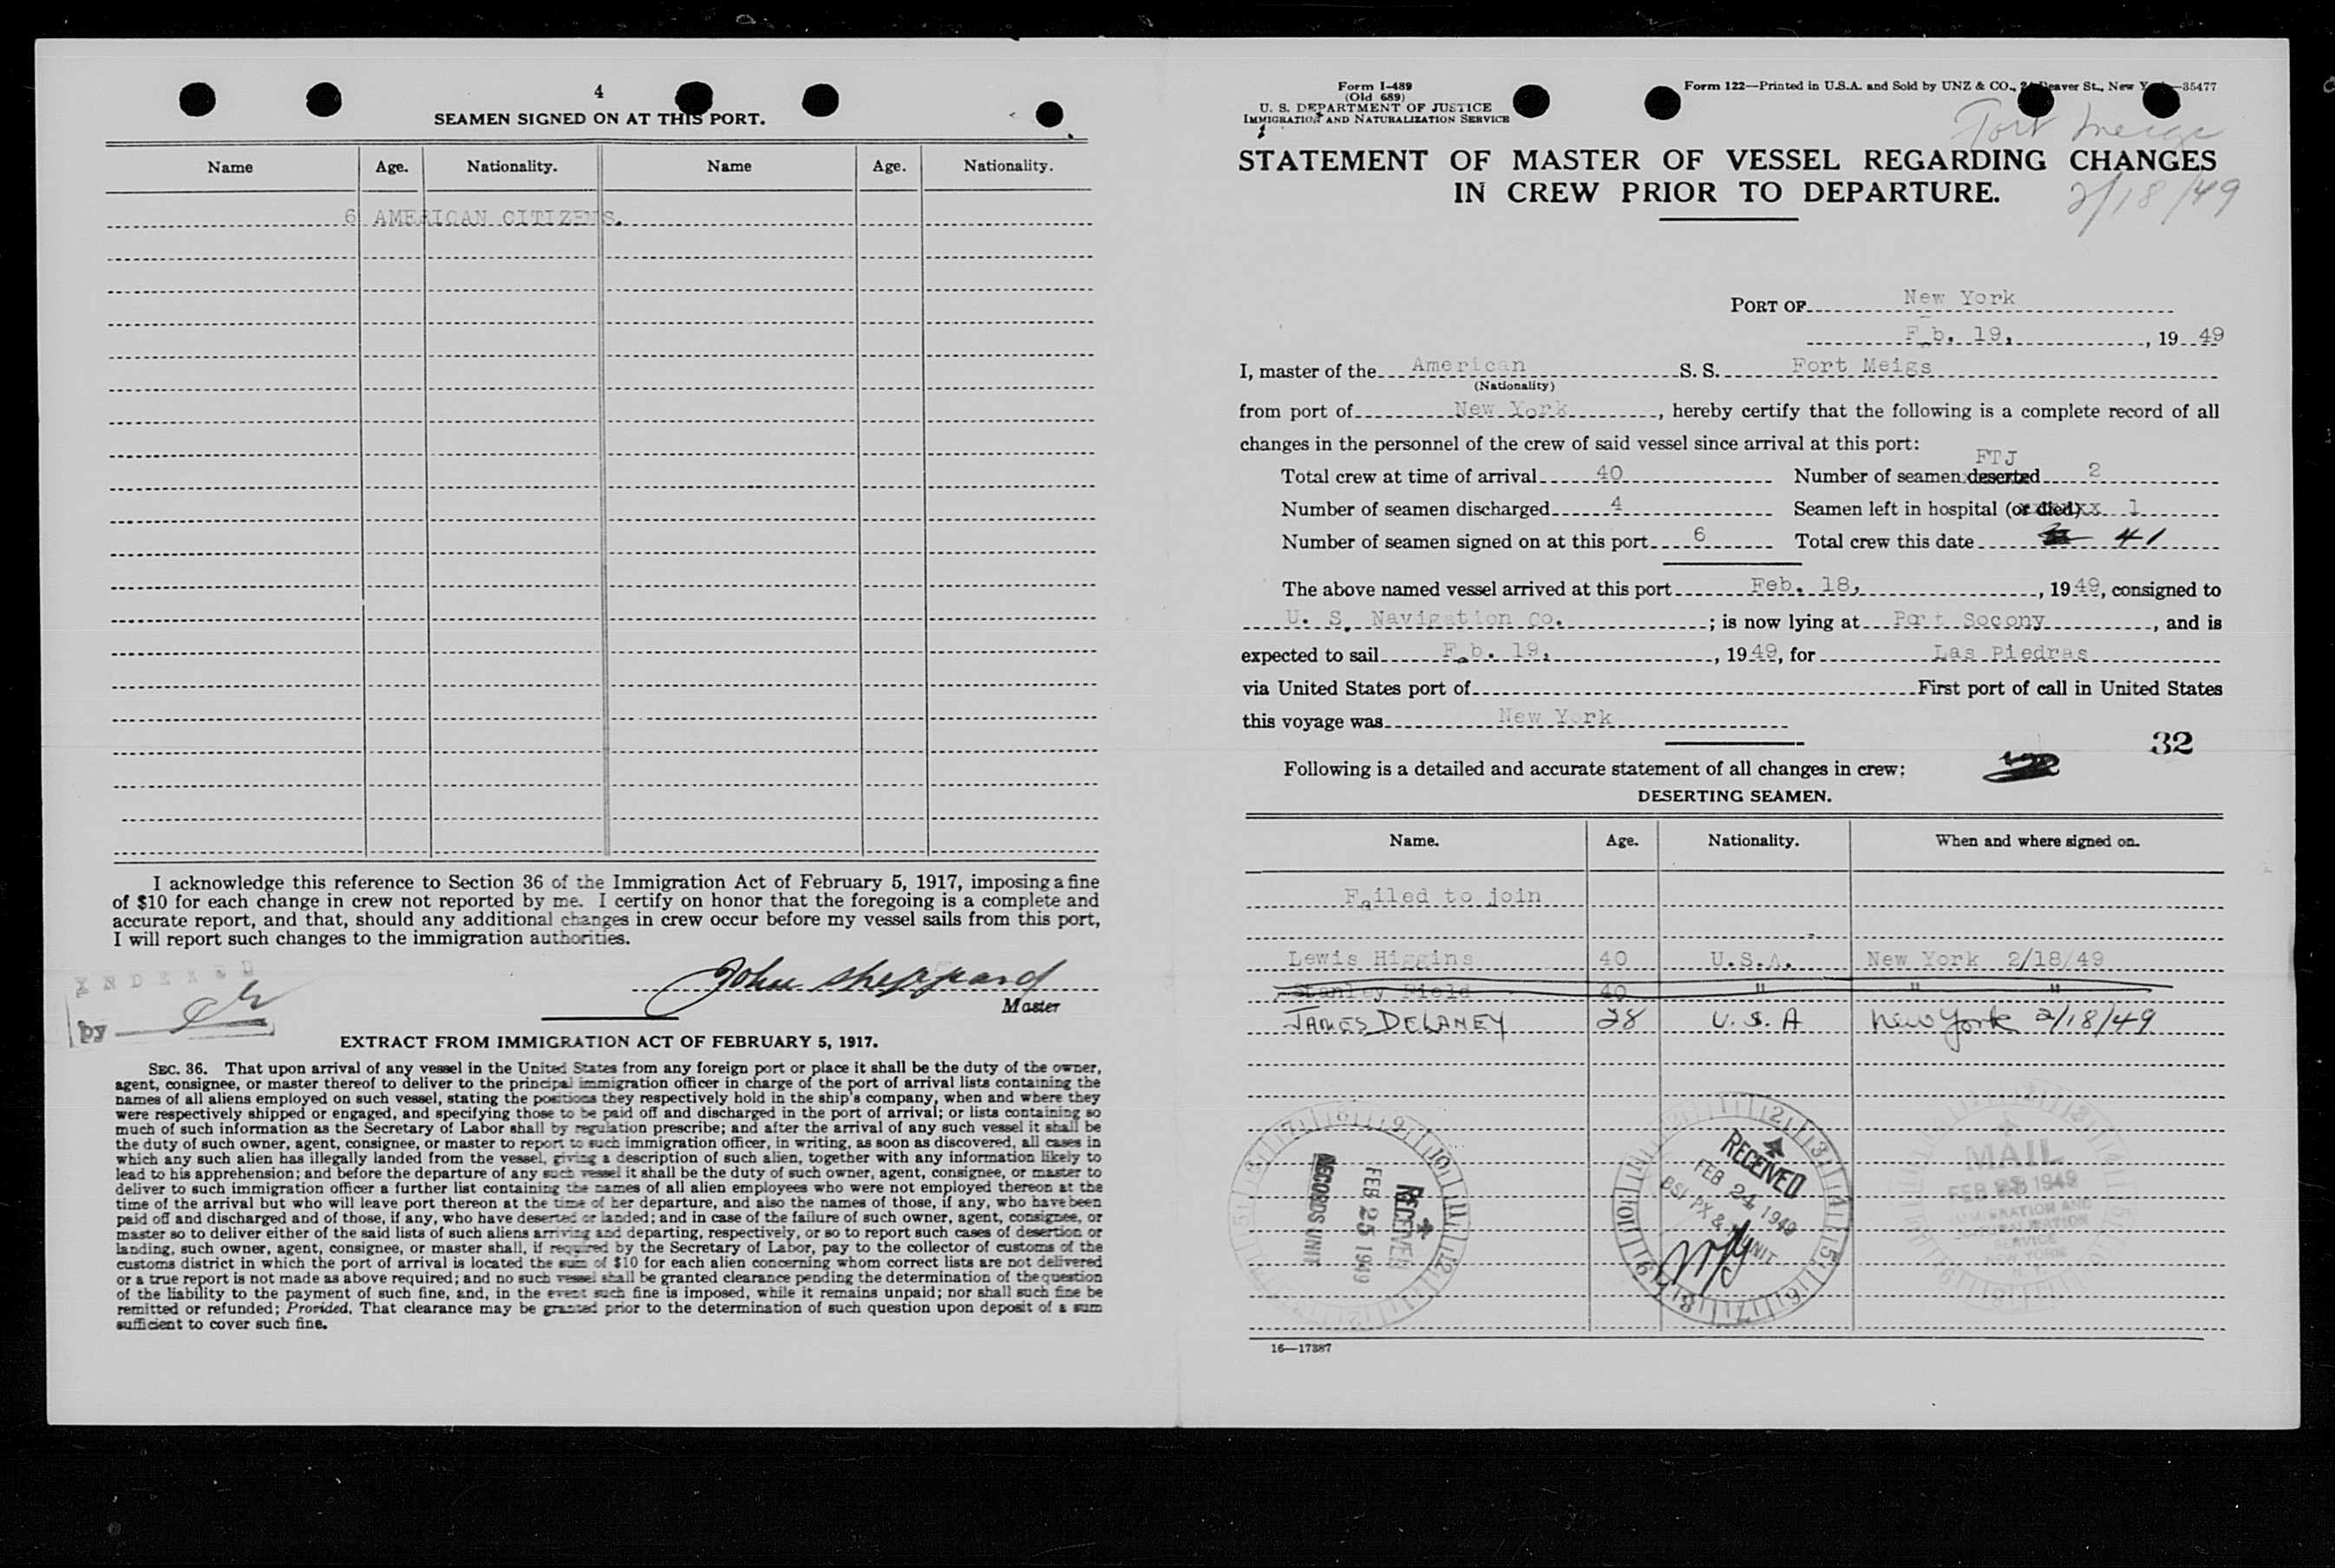 4
SEAMEN SIGNED ON AT THIS PORT.
Name Age. Nationality. Name Age. Nationality.
6 AMERICAN CITIZENS.
I acknowledge this reference to Section 36 of the Immigration Act of February 5, 1917, imposing a fine
of $10 for each change in crew not reported by me. I certify on honor that the foregoing is a complete and
accurate report, and that, should any additional changes in crew occur before my vessel sails from this port,
I will report such changes to the immigration authorities.
INDEXED
by
John Sheppard
Master
EXTRACT FROM IMMIGRATION ACT OF FEBRUARY 5, 1917.
SEC. 36. That upon arrival of any vessel in the United States from any foreign port or place it shall be the duty of the owner,
agent, consignee, or master thereof to deliver to the principal immigration officer in charge of the port of arrival lists containing the
names of all aliens employed on such vessel, stating the positions they respectively hold in the ship's company, when and where they
were respectively shipped or engaged, and specifying those to be paid off and discharged in the port of arrival; or lists containing so
much of such information as the Secretary of Labor shall by regulation prescribe; and after the arrival of any such vessel it shall be
the duty of such owner, agent, consignee, or master to report to such immigration officer, in writing, as soon as discovered, all cases in
which any such alien has illegally landed from the vessel, giving a description of such alien, together with any information likely to
lead to his apprehension; and before the departure of any such vessel it shall be the duty of such owner, agent, consignee, or master to
deliver to such immigration officer a further list containing the names of all alien employees who were not employed thereon at the
time of the arrival but who will leave port thereon at the time of her departure, and also the names of those, if any, who have been
paid off and discharged and of those, if any, who have deserted or landed; and in case of the failure of such owner, agent, consignee, or
master so to deliver either of the said lists of such aliens arriving and departing, respectively, or so to report such cases of desertion or
landing, such owner, agent, consignee, or master shall, if required by the Secretary of Labor, pay to the collector of customs of the
customs district in which the port of arrival is located the sum of $10 for each alien concerning whom correct lists are not delivered
or a true report is not made as above required; and no such vessel shall be granted clearance pending the determination of the question
of the liability to the payment of such fine, and, in the event such fine is imposed, while it remains unpaid; nor shall such fine be
remitted or refunded; Provided, That clearance may be granted prior to the determination of such question upon deposit of a sum
sufficient to cover such fine.
Form I-489
(Old 689)
U. S. DEPARTMENT OF JUSTICE
IMMIGRATION AND NATURALIZATION SERVICE
Form 122—Printed in U.S.A. and Sold by UNZ & CO., Beaver St., New Y —35477
Fort Meigs
STATEMENT OF MASTER OF VESSEL REGARDING CHANGES
IN CREW PRIOR TO DEPARTURE.
2/18/49
PORT OF New York
Feb. 19, , 19 49
I, master of the American S. S. Fort Meigs
(Nationality)
from port of New York , hereby certify that the following is a complete record of all
changes in the personnel of the crew of said vessel since arrival at this port:
FTJ
Total crew at time of arrival 40 Number of seamen deserted 2
Number of seamen discharged 4 Seamen left in hospital (or died) xx 1
Number of seamen signed on at this port 6 Total crew this date 41
The above named vessel arrived at this port Feb. 18, , 19 49, consigned to
U. S. Navigation Co. ; is now lying at Port Socony , and is
expected to sail Feb. 19, , 19 49, for Las Piedras
via United States port of First port of call in United States
this voyage was New York
32
Following is a detailed and accurate statement of all changes in crew:
DESERTING SEAMEN.
Name. Age. Nationality. When and where signed on.
Failed to join
Lewis Higgins 40 U.S.A. New York 2/18/49
Stanley Field 40 " " "
JAMES DELANEY 28 U.S.A New York 2/18/49
RECEIVED
FEB 25 1949
RECORDS UNIT
RECEIVED
FEB 24 1949
BSI PX & UNIT
MAIL
FEB 1949
IMMIGRATION AND
NATURALIZATION
SERVICE
NEW YORK
16—17387